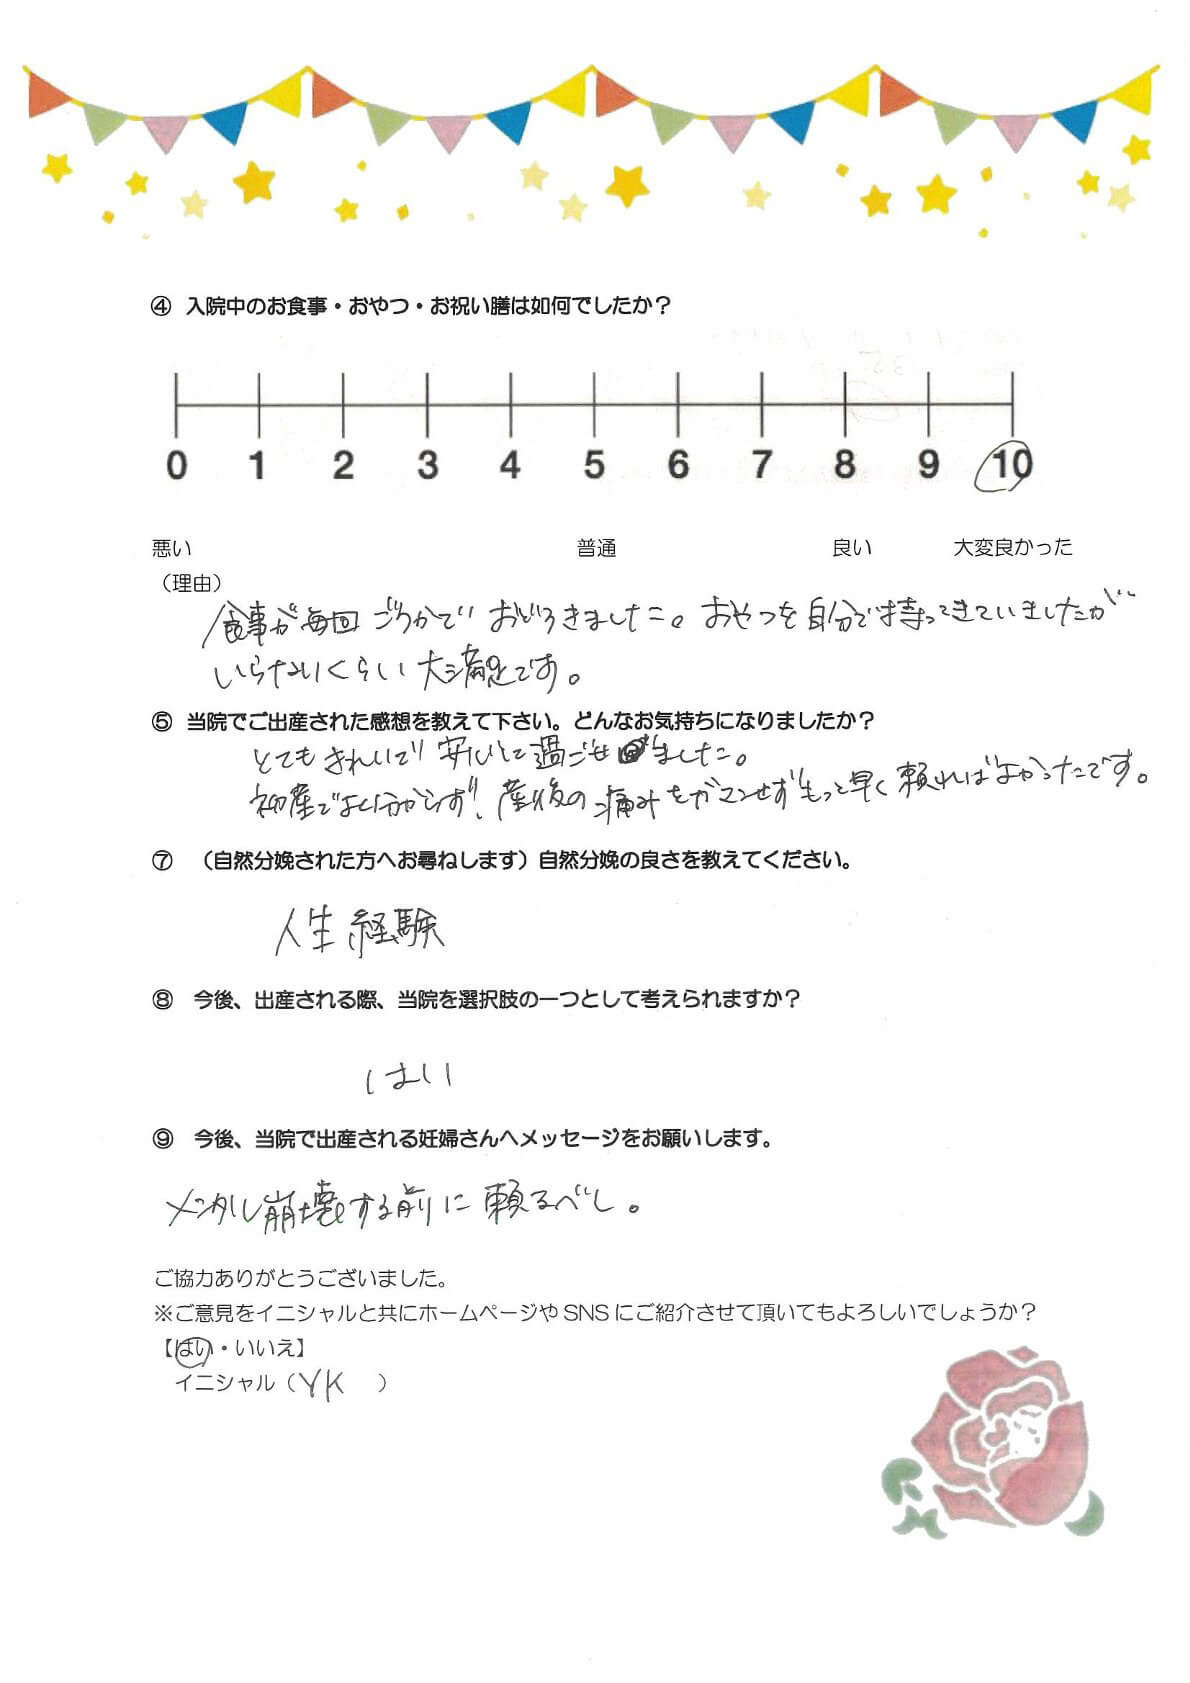 ④ 入院中のお食事・おやつ・お祝い膳は如何でしたか？
0 1 2 3 4 5 6 7 8 9 10
悪い 普通 良い 大変良かった
（理由）
食事が毎回ごうかでおどろきました。おやつを自分で持ってきていましたが
いらないくらい大満足です。
⑤ 当院でご出産された感想を教えて下さい。どんなお気持ちになりましたか？
とてもきれいで安心して過ごせました。
初産でよく分からず、産後の痛みをガマンせずもっと早く頼ればよかったです。
⑦ （自然分娩された方へお尋ねします）自然分娩の良さを教えてください。
人生経験
⑧ 今後、出産される際、当院を選択肢の一つとして考えられますか？
はい
⑨ 今後、当院で出産される妊婦さんへメッセージをお願いします。
メンタル崩壊する前に頼るべし。
ご協力ありがとうございました。
※ご意見をイニシャルと共にホームページや SNS にご紹介させて頂いてもよろしいでしょうか？
【はい・いいえ】
イニシャル（YK ）